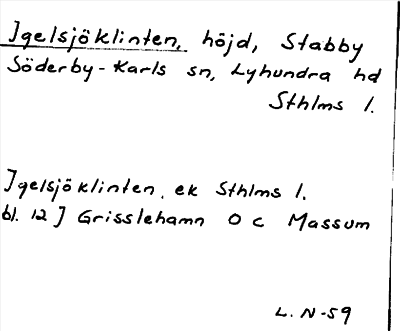 Igelsjöklinten, höjd, Stabby
Söderby-Karls sn, Lyhundra hd
Sthlms l.
Igelsjöklinten, ek Sthlms l.
bl. 12 J Grisslehamn O C Massum
L. N-59